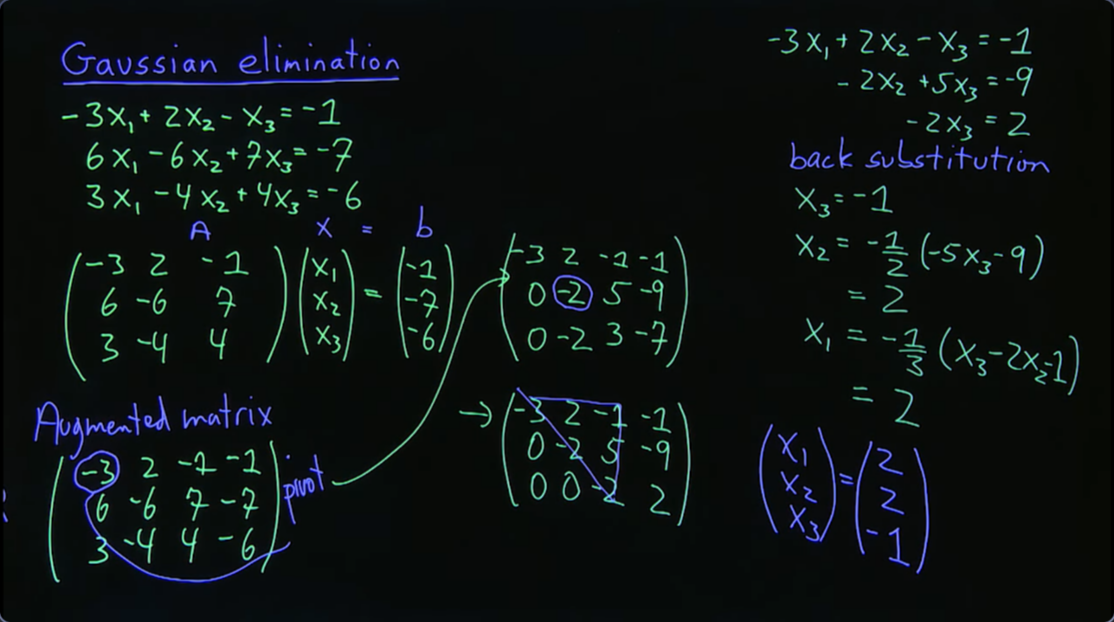 Gaussian elimination
-3x₁ + 2x₂ - x₃ = -1
6x₁ - 6x₂ + 7x₃ = -7
3x₁ - 4x₂ + 4x₃ = -6
A x = b
(-3 2 -1) (x₁) = (-1)
(6 -6 7) (x₂) = (-7)
(3 -4 4) (x₃) = (-6)
Augmented matrix
(-3 2 -1 -1) pivot
(6 -6 7 -7)
(3 -4 4 -6)
(-3 2 -1 -1)
(0 -2 5 -9)
(0 -2 3 -7)
→ (-3 2 -1 -1)
(0 -2 5 -9)
(0 0 -2 2)
-3x₁ + 2x₂ - x₃ = -1
-2x₂ + 5x₃ = -9
-2x₃ = 2
back substitution
x₃ = -1
x₂ = -1/2 (-5x₃ - 9)
= 2
x₁ = -1/3 (x₃ - 2x₂ - 1)
= 2
(x₁) = (2)
(x₂) = (2)
(x₃) = (-1)